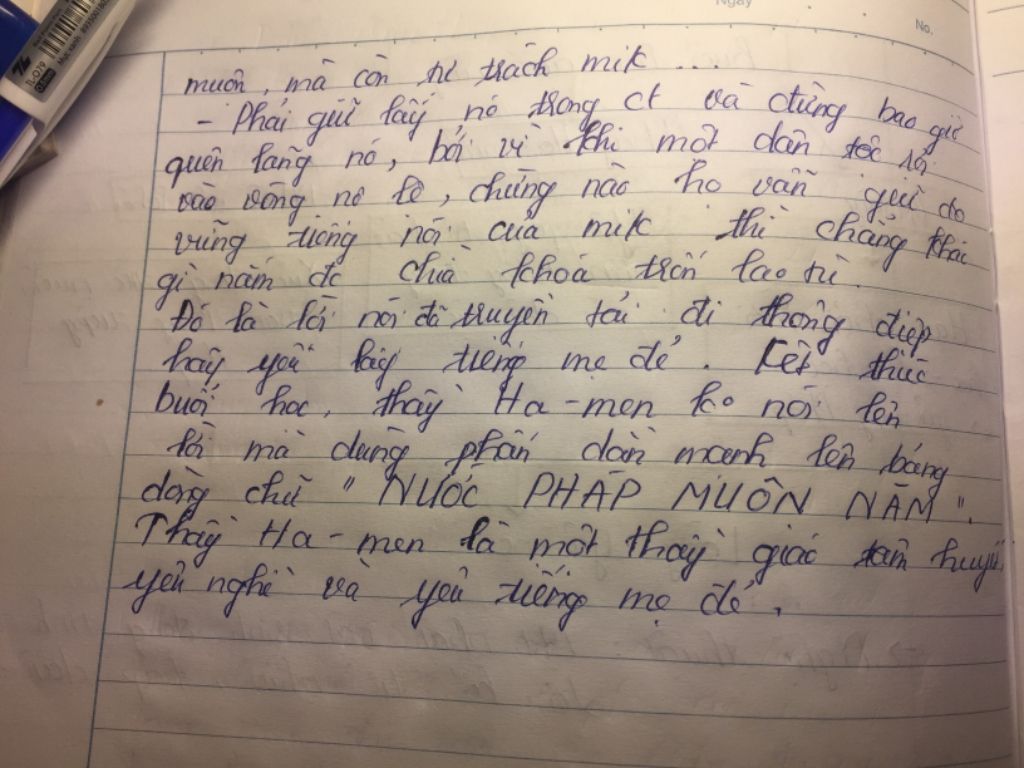 Ngày
No.
TL-079
muộn, mà còn tự trách mik ....
- Phải giữ lấy nó trong ct và đừng bao giờ
quên lãng nó, bởi vì khi một dân tộc rơi
vào vòng nô lệ, chừng nào họ vẫn giữ đc
vững tiếng nói của mik thì chẳng khác
gì nắm đc chìa khoá trốn lao tù.
Đó là lời nói đã truyền tải đi thông điệp
hãy yêu lấy tiếng mẹ đẻ. Kết thúc
buổi học, thầy Ha-men ko nói lên
lời mà dùng phấn dằn mạnh lên bảng
dòng chữ " NƯỚC PHÁP MUÔN NĂM ".
Thầy Ha-men là một thầy giáo tâm huyết
yêu nghề và yêu tiếng mẹ đẻ.